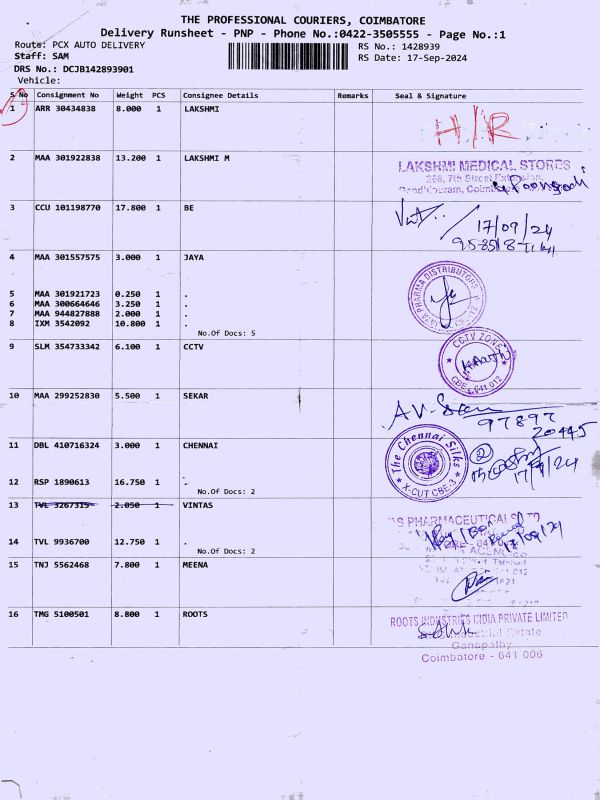 THE PROFESSIONAL COURIERS, COIMBATORE
Delivery Runsheet - PNP - Phone No.:0422-3505555 - Page No.:1
Route: PCX AUTO DELIVERY
RS No.: 1428939
Staff: SAM
RS Date: 17-Sep-2024
DRS No.: DCJB142893901
Vehicle:
S No Consignment No Weight PCS Consignee Details Remarks Seal & Signature
1 ARR 30434838 8.000 1 LAKSHMI
H/R
2 MAA 301922838 13.200 1 LAKSHMI M
LAKSHMI MEDICAL STORES
268, 7th Street Extension,
Gandhipuram,
3 CCU 101198770 17.800 1 BE
17/09/24
4 MAA 301557575 3.000 1 JAYA
PHARMA DISTRIBUTORS
5 MAA 301921723 0.250 1 .
6 MAA 300664646 3.250 1 .
7 MAA 944827888 2.000 1 .
8 IXM 3542092 10.800 1 .
No.Of Docs: 5
9 SLM 354733342 6.100 1 CCTV
CCTV ZONE
CBE - 641 012
10 MAA 299252830 5.500 1 SEKAR
97897
20445
11 DBL 410716324 3.000 1 CHENNAI
The Chennai Silks
X-CUT CBE-3
2
17/9/24
12 RSP 1890613 16.750 1 .
No.Of Docs: 2
13 TVL 3267315 2.050 1 VINTAS
PHARMACEUTICALS
17/09/24
14 TVL 9936700 12.750 1 .
No.Of Docs: 2
15 TNJ 5562468 7.800 1 MEENA
16 TMG 5100501 8.800 1 ROOTS
ROOTS INDUSTRIES INDIA PRIVATE LIMITED
Industrial Estate
Ganapathy
Coimbatore - 641 006